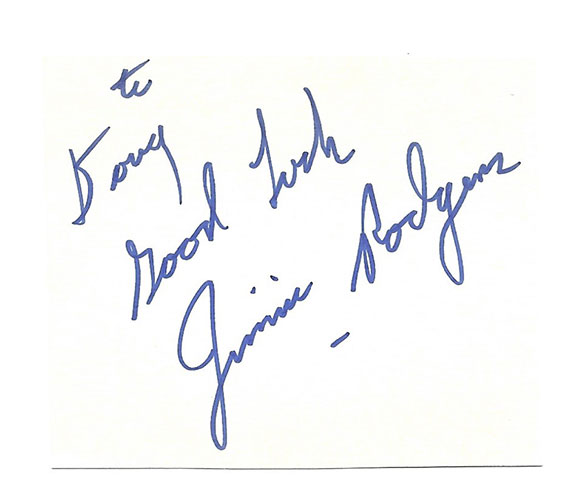 to
Doug
Good Luck
Jimmie Rodgers